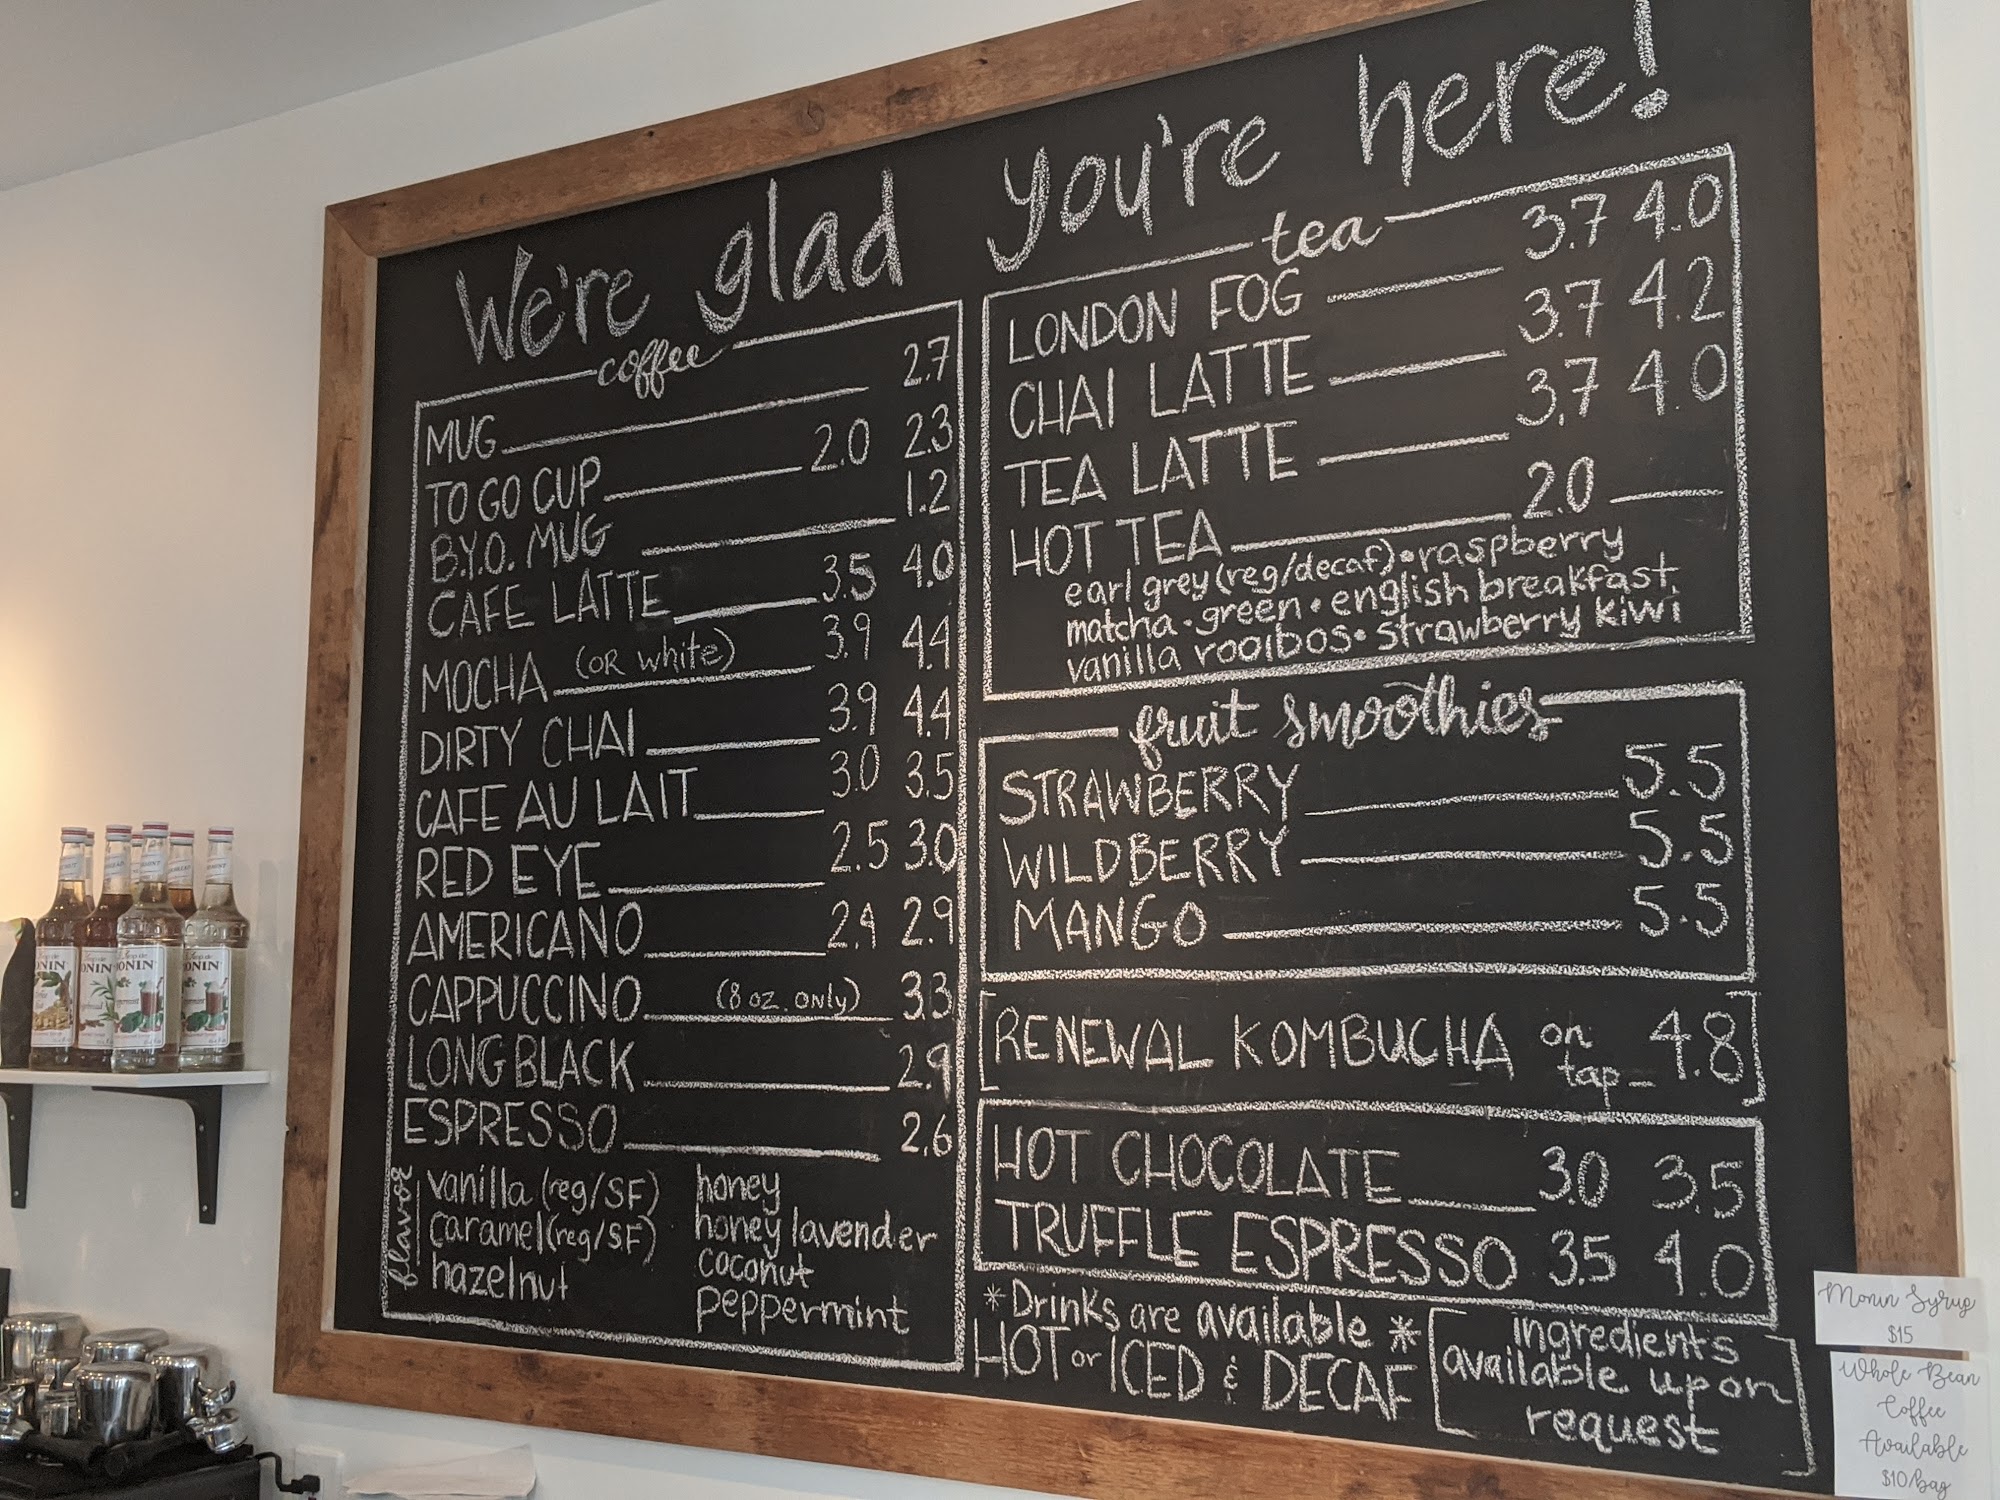 We're glad you're here!
coffee
MUG 2.7
TO GO CUP 2.0 2.3
B.Y.O. MUG 1.2
CAFE LATTE 3.5 4.0
MOCHA (OR white) 3.9 4.4
DIRTY CHAI 3.9 4.4
CAFE AU LAIT 3.0 3.5
RED EYE 2.5 3.0
AMERICANO 2.4 2.9
CAPPUCCINO (8 oz. only) 3.3
LONG BLACK 2.9
ESPRESSO 2.6
flavor
vanilla (reg/SF)
caramel (reg/S.F)
hazelnut
honey
honey lavender
coconut
peppermint
tea
LONDON FOG 3.7 4.0
CHAI LATTE 3.7 4.2
TEA LATTE 3.7 4.0
HOT TEA 2.0
earl grey (reg/decaf) • raspberry
matcha • green • english breakfast
vanilla rooibos • strawberry kiwi
fruit smoothies
STRAWBERRY 5.5
WILDBERRY 5.5
MANGO 5.5
RENEWAL KOMBUCHA on tap 4.8
HOT CHOCOLATE 3.0 3.5
TRUFFLE ESPRESSO 3.5 4.0
*Drinks are available *
HOT or ICED & DECAF
ingredients
available upon
request
Monin Syrup
$15
Whole Bean
Coffee
Available
$10/bag
MONIN
MONIN